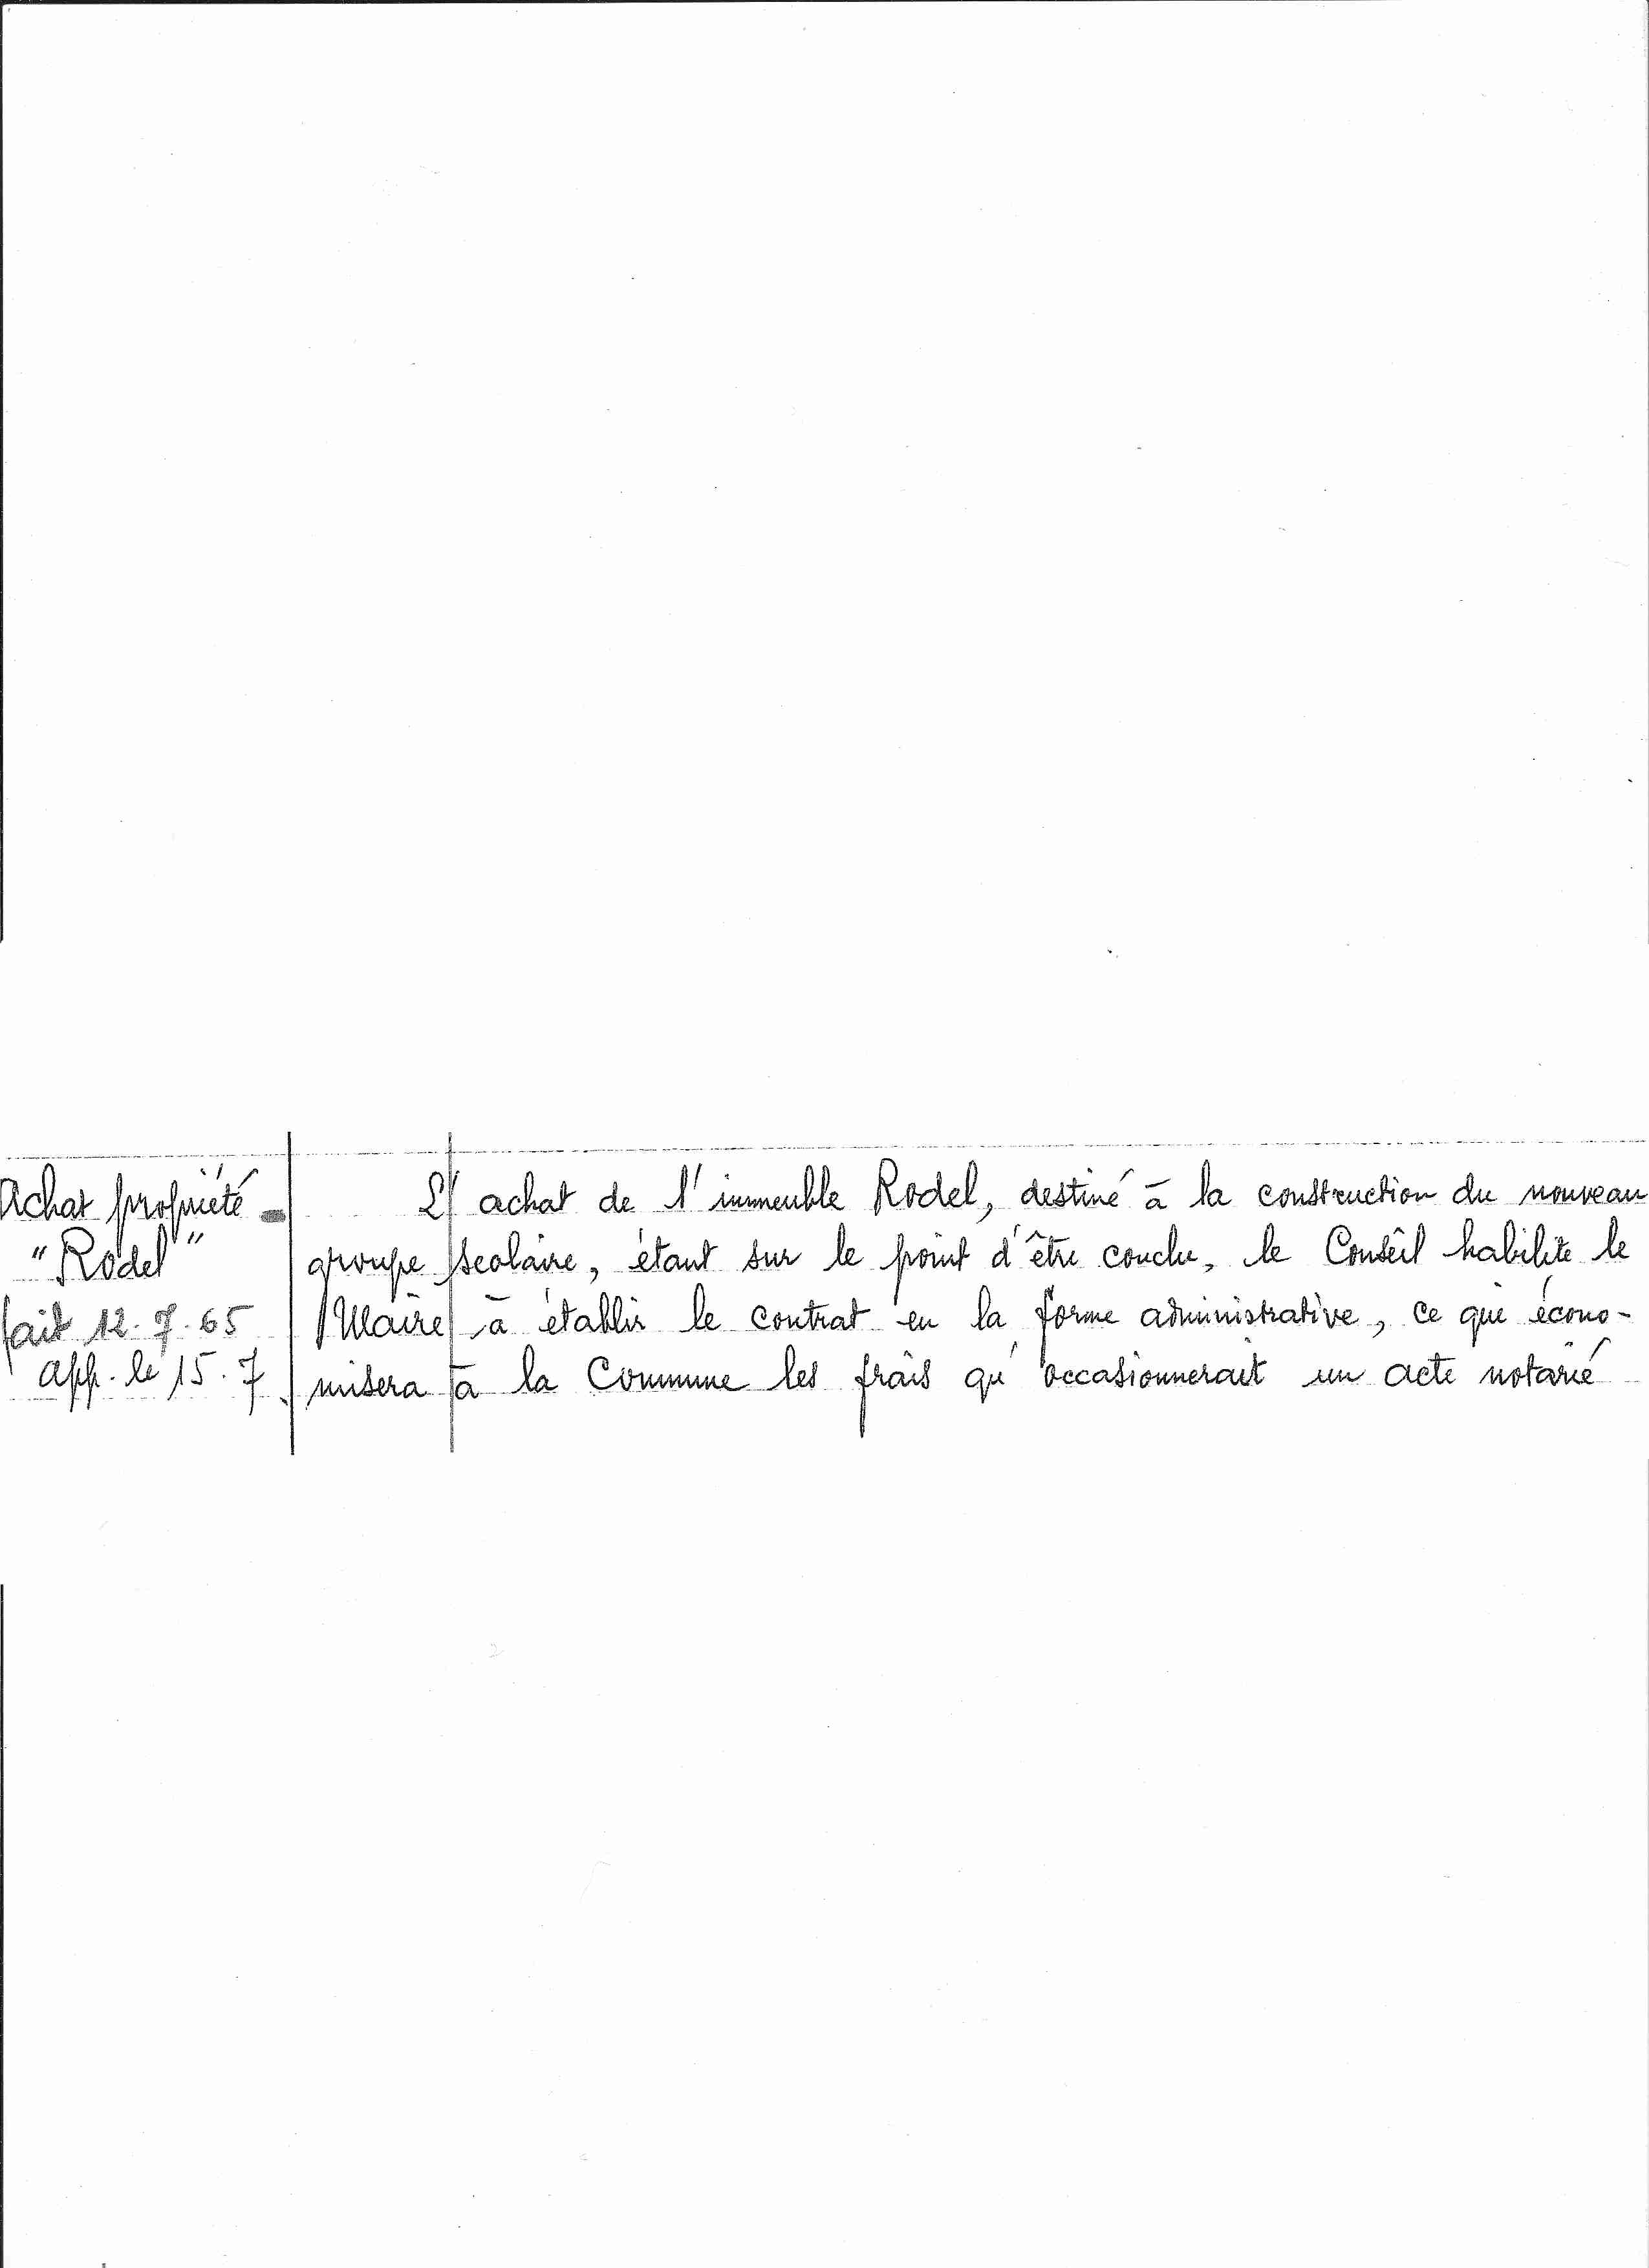 Achat propriété -
"Rodel"
fait 12.7.65
app. le 15.7
L'achat de l'immeuble Rodel, destiné à la construction du nouveau
groupe scolaire, étant sur le point d'être conclu, le Conseil habilite le
Maire à établir le contrat en la forme administrative, ce que écono-
misera à la Commune les frais qu'occasionnerait un acte notarié